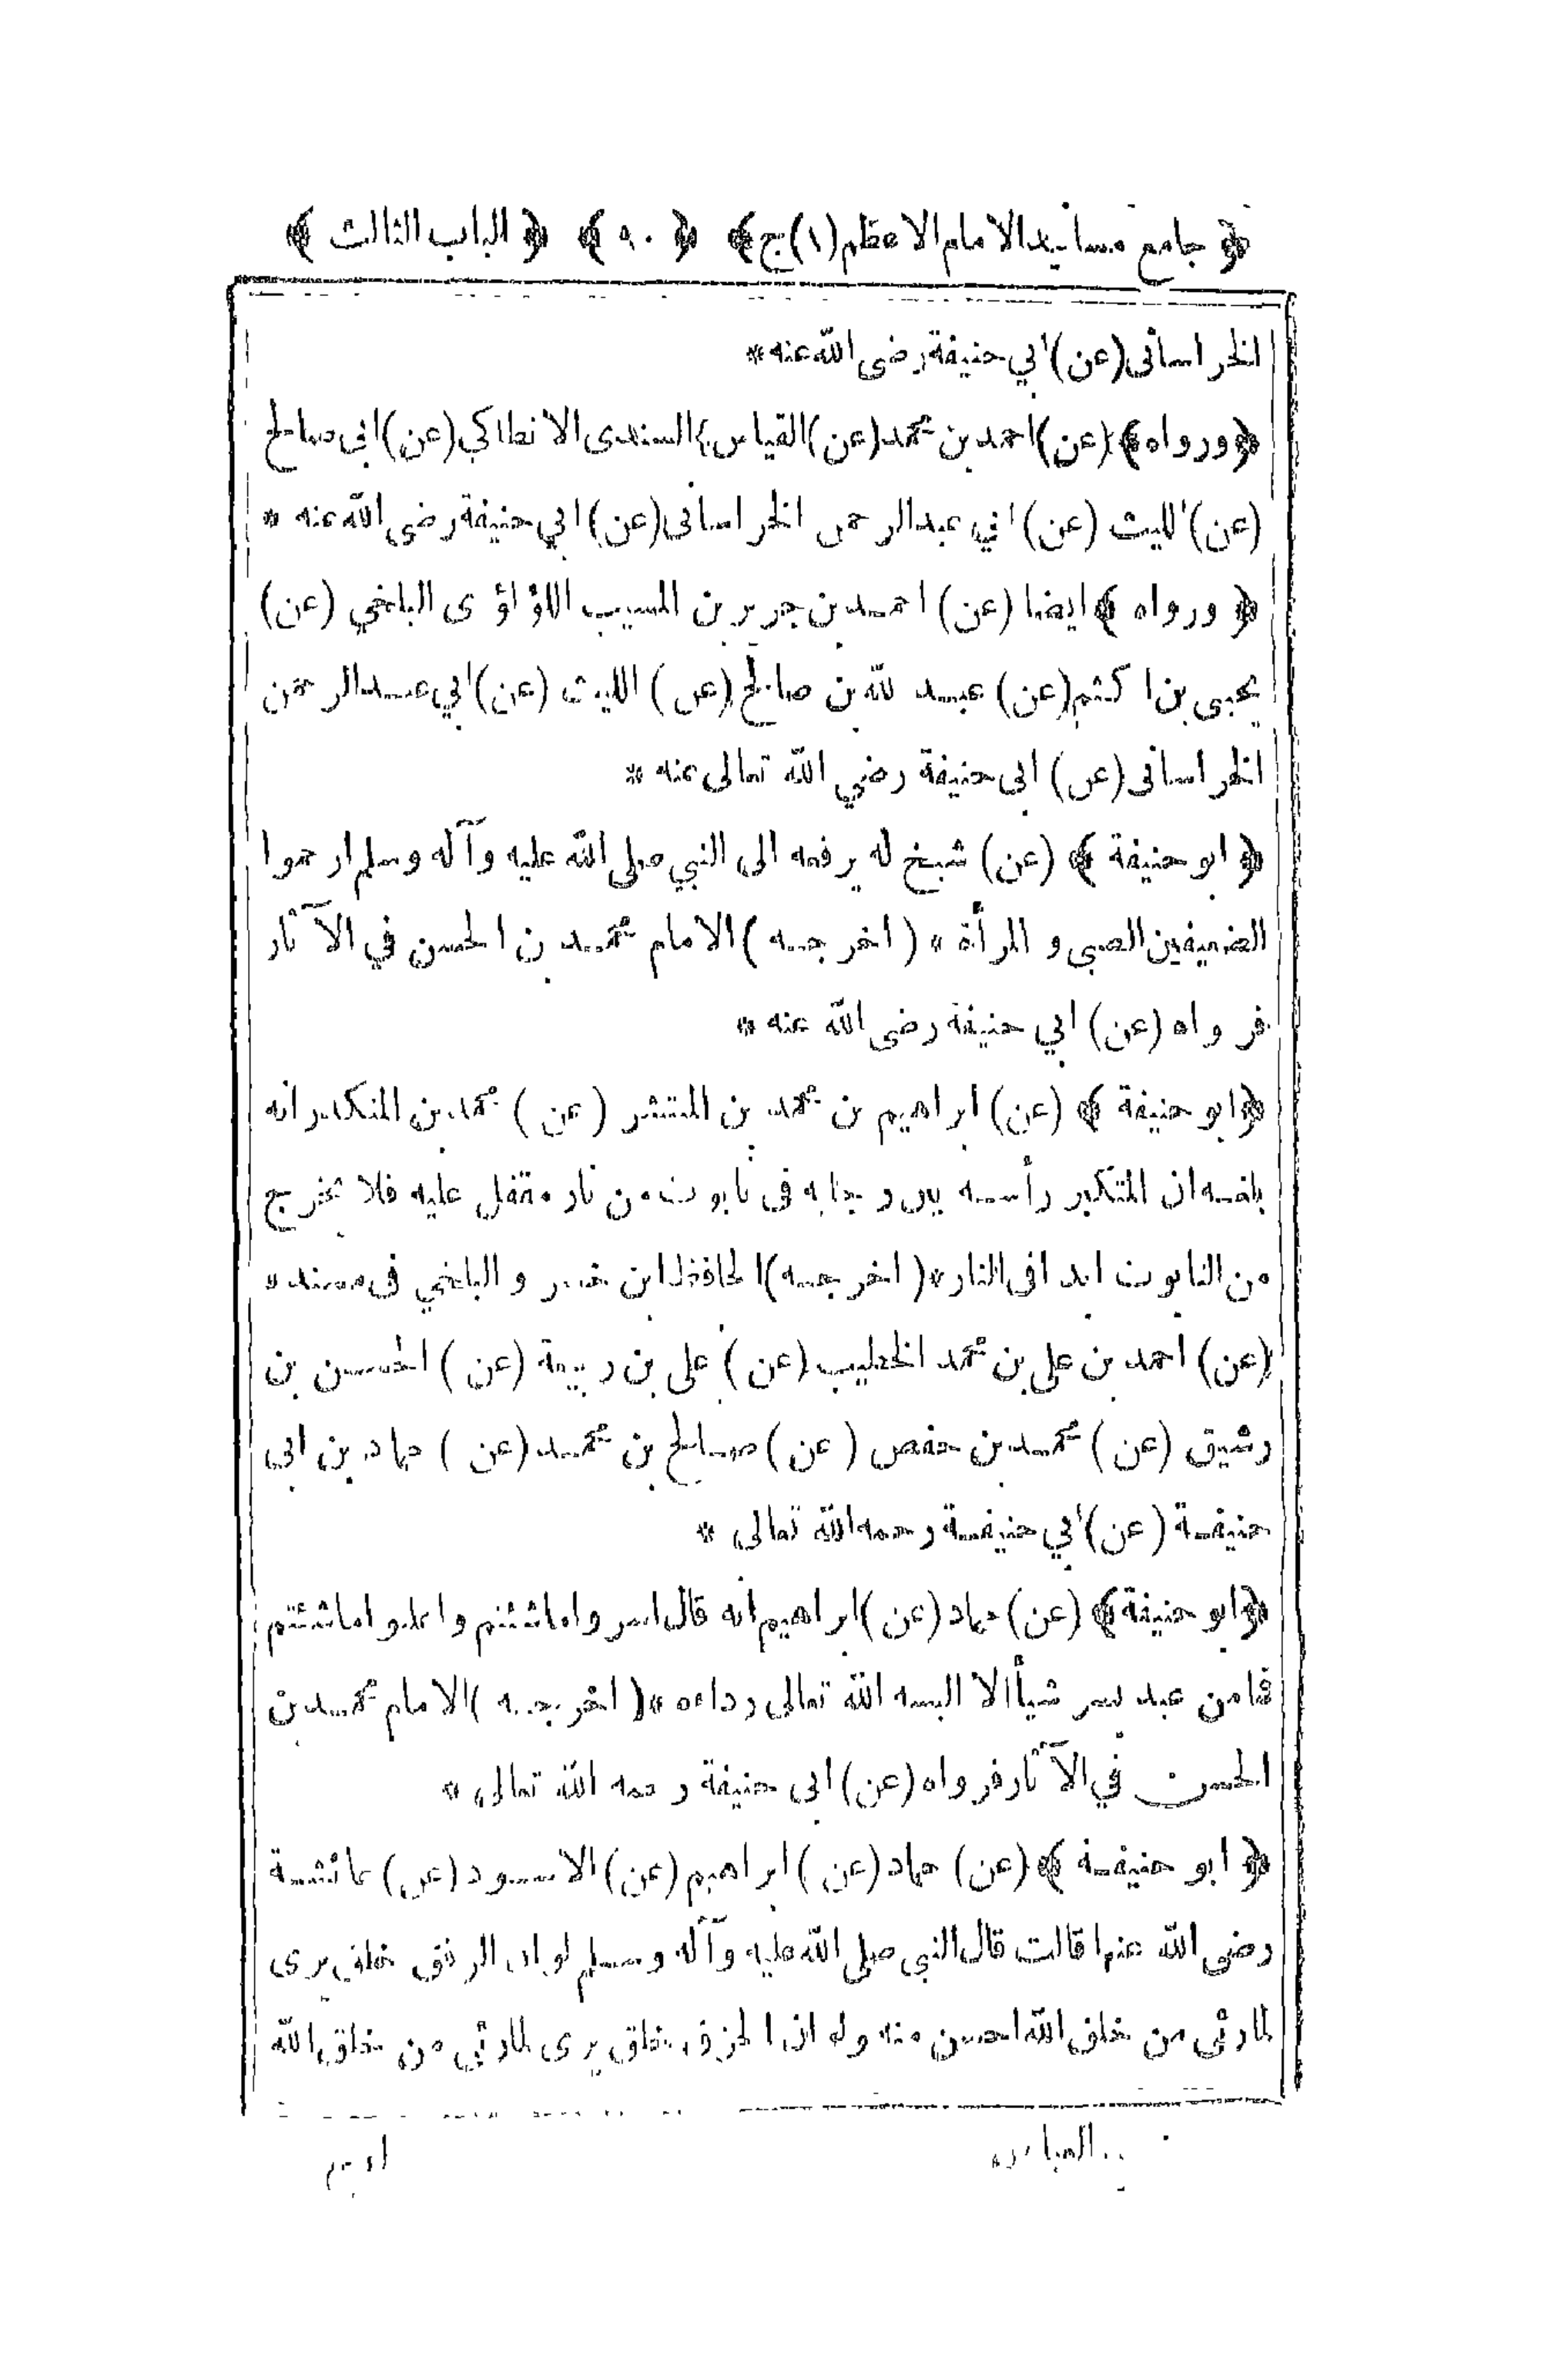 ﴿ جامع مسانيد الامام الاعظم (١) ج ﴾ ﴿ ٩٠ ﴾ ﴿ الباب الثالث ﴾
الخراسانى (عن) ابي حنيفة رضى الله عنه *
﴿ ورواه ﴾ (عن) احمد بن محمد (عن) القياس السندى الانطاكي (عن) ابى صالح
(عن) الليث (عن) ابي عبد الرحمن الخراسانى (عن) ابي حنيفة رضى الله عنه *
﴿ ورواه ﴾ ايضا (عن) احمد بن جرير بن المسيب اللؤلؤى البلخي (عن)
يحيى بن اكثم (عن) عبد الله بن صالح (عن) الليث (عن) ابي عبد الرحمن
الخراسانى (عن) ابى حنيفة رضي الله تعالى عنه *
﴿ ابو حنيفة ﴾ (عن) شيخ له يرفعه الى النبي صلى الله عليه وآله وسلم ارحموا
الضعيفين الصبى و المرأة * (اخرجه) الامام محمد بن الحسن في الآثار
فرواه (عن) ابي حنيفة رضى الله عنه *
﴿ ابو حنيفة ﴾ (عن) ابراهيم بن محمد بن المنتشر (عن) محمد بن المنكدر انه
بلغه ان المتكبر رأسه بين رجليه فى تابوت من نار مقفل عليه فلا يخرج
من التابوت ابدا فى النار * (اخرجه) الحافظ ابن خسرو البلخي فى مسنده *
(عن) احمد بن على بن محمد الخطيب (عن) على بن ربيعة (عن) الحسن بن
رشيق (عن) محمد بن حفص (عن) صالح بن محمد (عن) حماد بن ابى
حنيفة (عن) ابي حنيفة رحمه الله تعالى *
﴿ ابو حنيفة ﴾ (عن) حماد (عن) ابراهيم انه قال اسروا ماشئتم واعلنوا ماشئتم
فما من عبد يسر شيأ الا البسه الله تعالى رداءه * (اخرجه) الامام محمد بن
الحسن في الآثار فرواه (عن) ابى حنيفة رحمه الله تعالى *
﴿ ابو حنيفة ﴾ (عن) حماد (عن) ابراهيم (عن) الاسود (عن) عائشة
رضى الله عنها قالت قال النبى صلى الله عليه وآله وسلم لو ان الرفق خلق يرى
لما رئى من خلق الله احسن منه ولو ان الخرق خلق يرى لما رئى من خلق الله